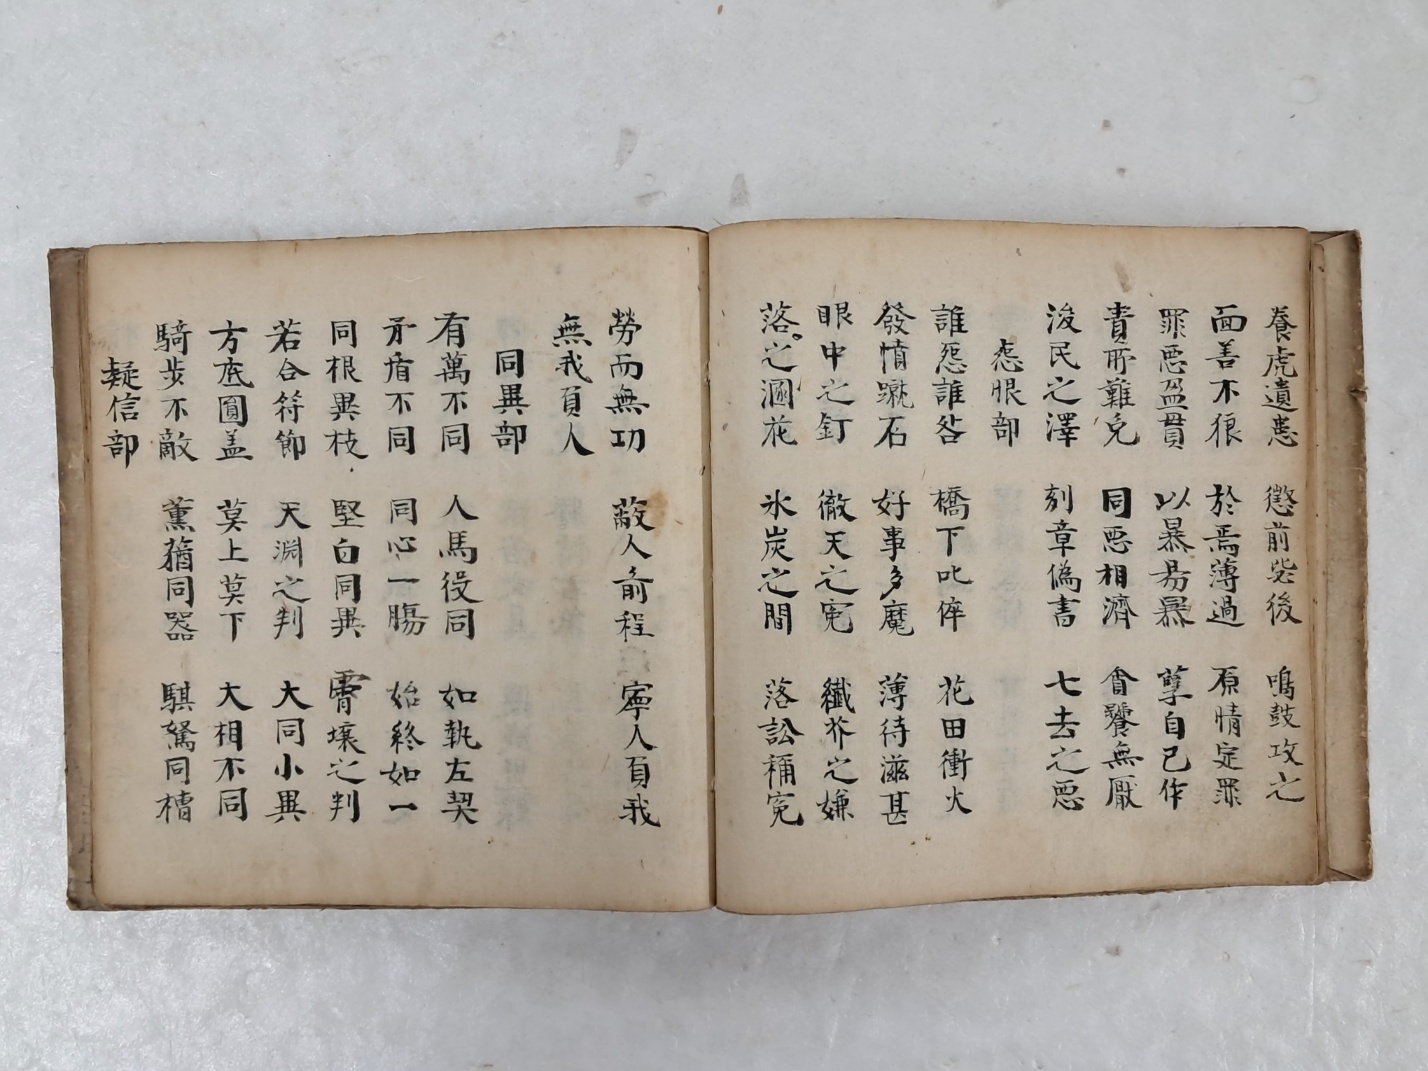 養虎遺患 懲前毖後 鳴鼓攻之
面善不狠 於焉薄過 原情定罪
罪惡盈貫 以暴易暴 孽自己作
責所難免 同惡相濟 貪饕無厭
浚民之澤 刻章偽書 七去之惡
㤪恨部
誰怨誰咎 橋下叱倅 花田衝火
發憤蹴石 好事多魔 薄待滋甚
眼中之釘 徹天之寃 纖芥之嫌
落之溷花 氷炭之間 落訟稱寃
勞而無功 蔽人前程 寧人負我
無我負人
同異部
有萬不同 人馬役同 如執左契
矛盾不同 同心一腸 始終如一
同根異枝 堅白同異 霄壤之判
若合符節 天淵之判 大同小異
方底圓盖 莫上莫下 大相不同
騎步不敵 薰蕕同器 騏駑同槽
疑信部